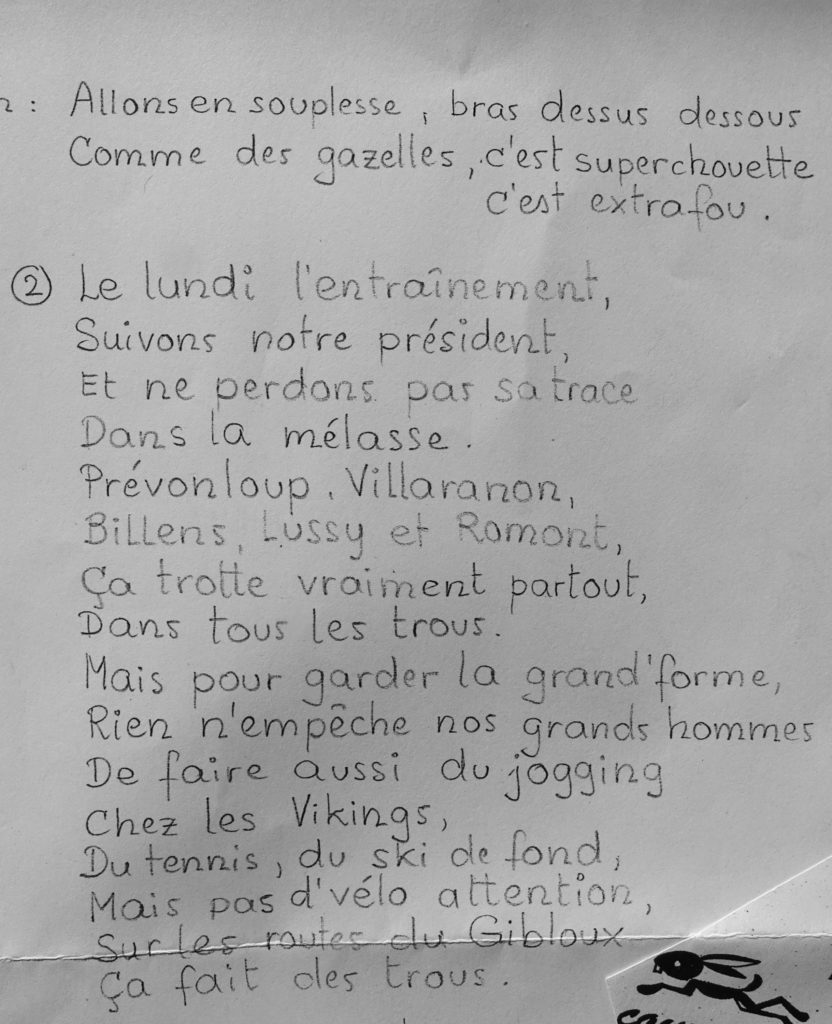 : Allons en souplesse, bras dessus dessous
Comme des gazelles, c'est superchouette
c'est extrafou.
② Le lundi l'entraînement,
Suivons notre président,
Et ne perdons pas sa trace
Dans la mélasse.
Prévonloup, Villaranon,
Billens, Lussy et Romont,
Ça trotte vraiment partout,
Dans tous les trous.
Mais pour garder la grand'forme,
Rien n'empêche nos grands hommes
De faire aussi du jogging
Chez les Vikings,
Du tennis, du ski de fond,
Mais pas d'vélo attention,
Sur les routes du Gibloux
Ça fait des trous.